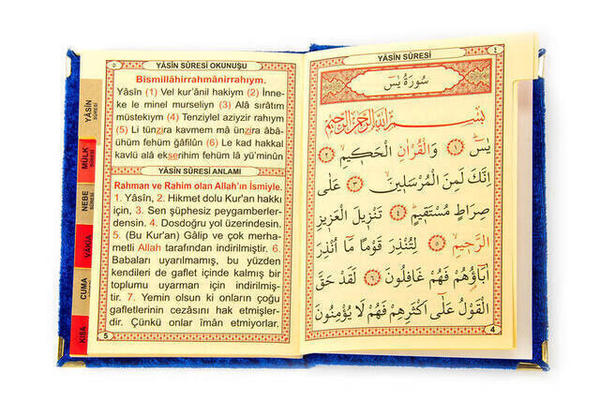 YÂSİN SÛRESİ
MÜLK SÛRESİ
NEBE SÛRESİ
VAKIA
CUMA
KISA
٥
YÂSİN SÛRESİ OKUNUŞU
Bismillâhirrahmânirrahıym.
Yâsîn (1) Vel kur'ânil hakiym (2) İnne-
ke le minel murseliyn (3) Alâ sırâtım
müstekıym (4) Tenziylel aziyzir rahıym
(5) Li tünzira kavmem mâ ünzira âbâ-
ühüm fehüm ğâfilûn (6) Le kad hakkal
kavlü alâ ekserihim fehüm lâ yü'minûn
YÂSİN SÛRESİ ANLAMI
Rahman ve Rahim olan Allah'ın İsmiyle.
1. Yâsîn, 2. Hikmet dolu Kur'an hakkı
için, 3. Sen şüphesiz peygamberler-
densin. 4. Dosdoğru yol üzerindesin.
5. (Bu Kur'an) Gâlip ve çok merha-
metli Allah tarafından indirilmiştir. 6.
Babaları uyarılmamış, bu yüzden
kendileri de gaflet içinde kalmış bir
toplumu uyarman için indirilmiş-
tir. 7. Yemin olsun ki onların çoğu
gafletlerinin cezasını hak etmişler-
dir. Çünkü onlar îmân etmiyorlar.
5
YÂSİN SÛRESİ
٤
سُورَةُ يٰسٓ
بِسْمِ اللّٰهِ الرَّحْمٰنِ الرَّحِيمِ
يٰسٓ ﴿١﴾ وَالْقُرْاٰنِ الْحَكِيمِ ﴿٢﴾
اِنَّكَ لَمِنَ الْمُرْسَلِينَ ﴿٣﴾ عَلٰى
صِرَاطٍ مُسْتَقِيمٍ ﴿٤﴾ تَنْزِيلَ الْعَزِيزِ
الرَّحِيمِ ﴿٥﴾ لِتُنْذِرَ قَوْمًا مَٓا اُنْذِرَ
اٰبَٓاؤُهُمْ فَهُمْ غَافِلُونَ ﴿٦﴾ لَقَدْ حَقَّ
الْقَوْلُ عَلٰٓى اَكْثَرِهِمْ فَهُمْ لَا يُؤْمِنُونَ
4